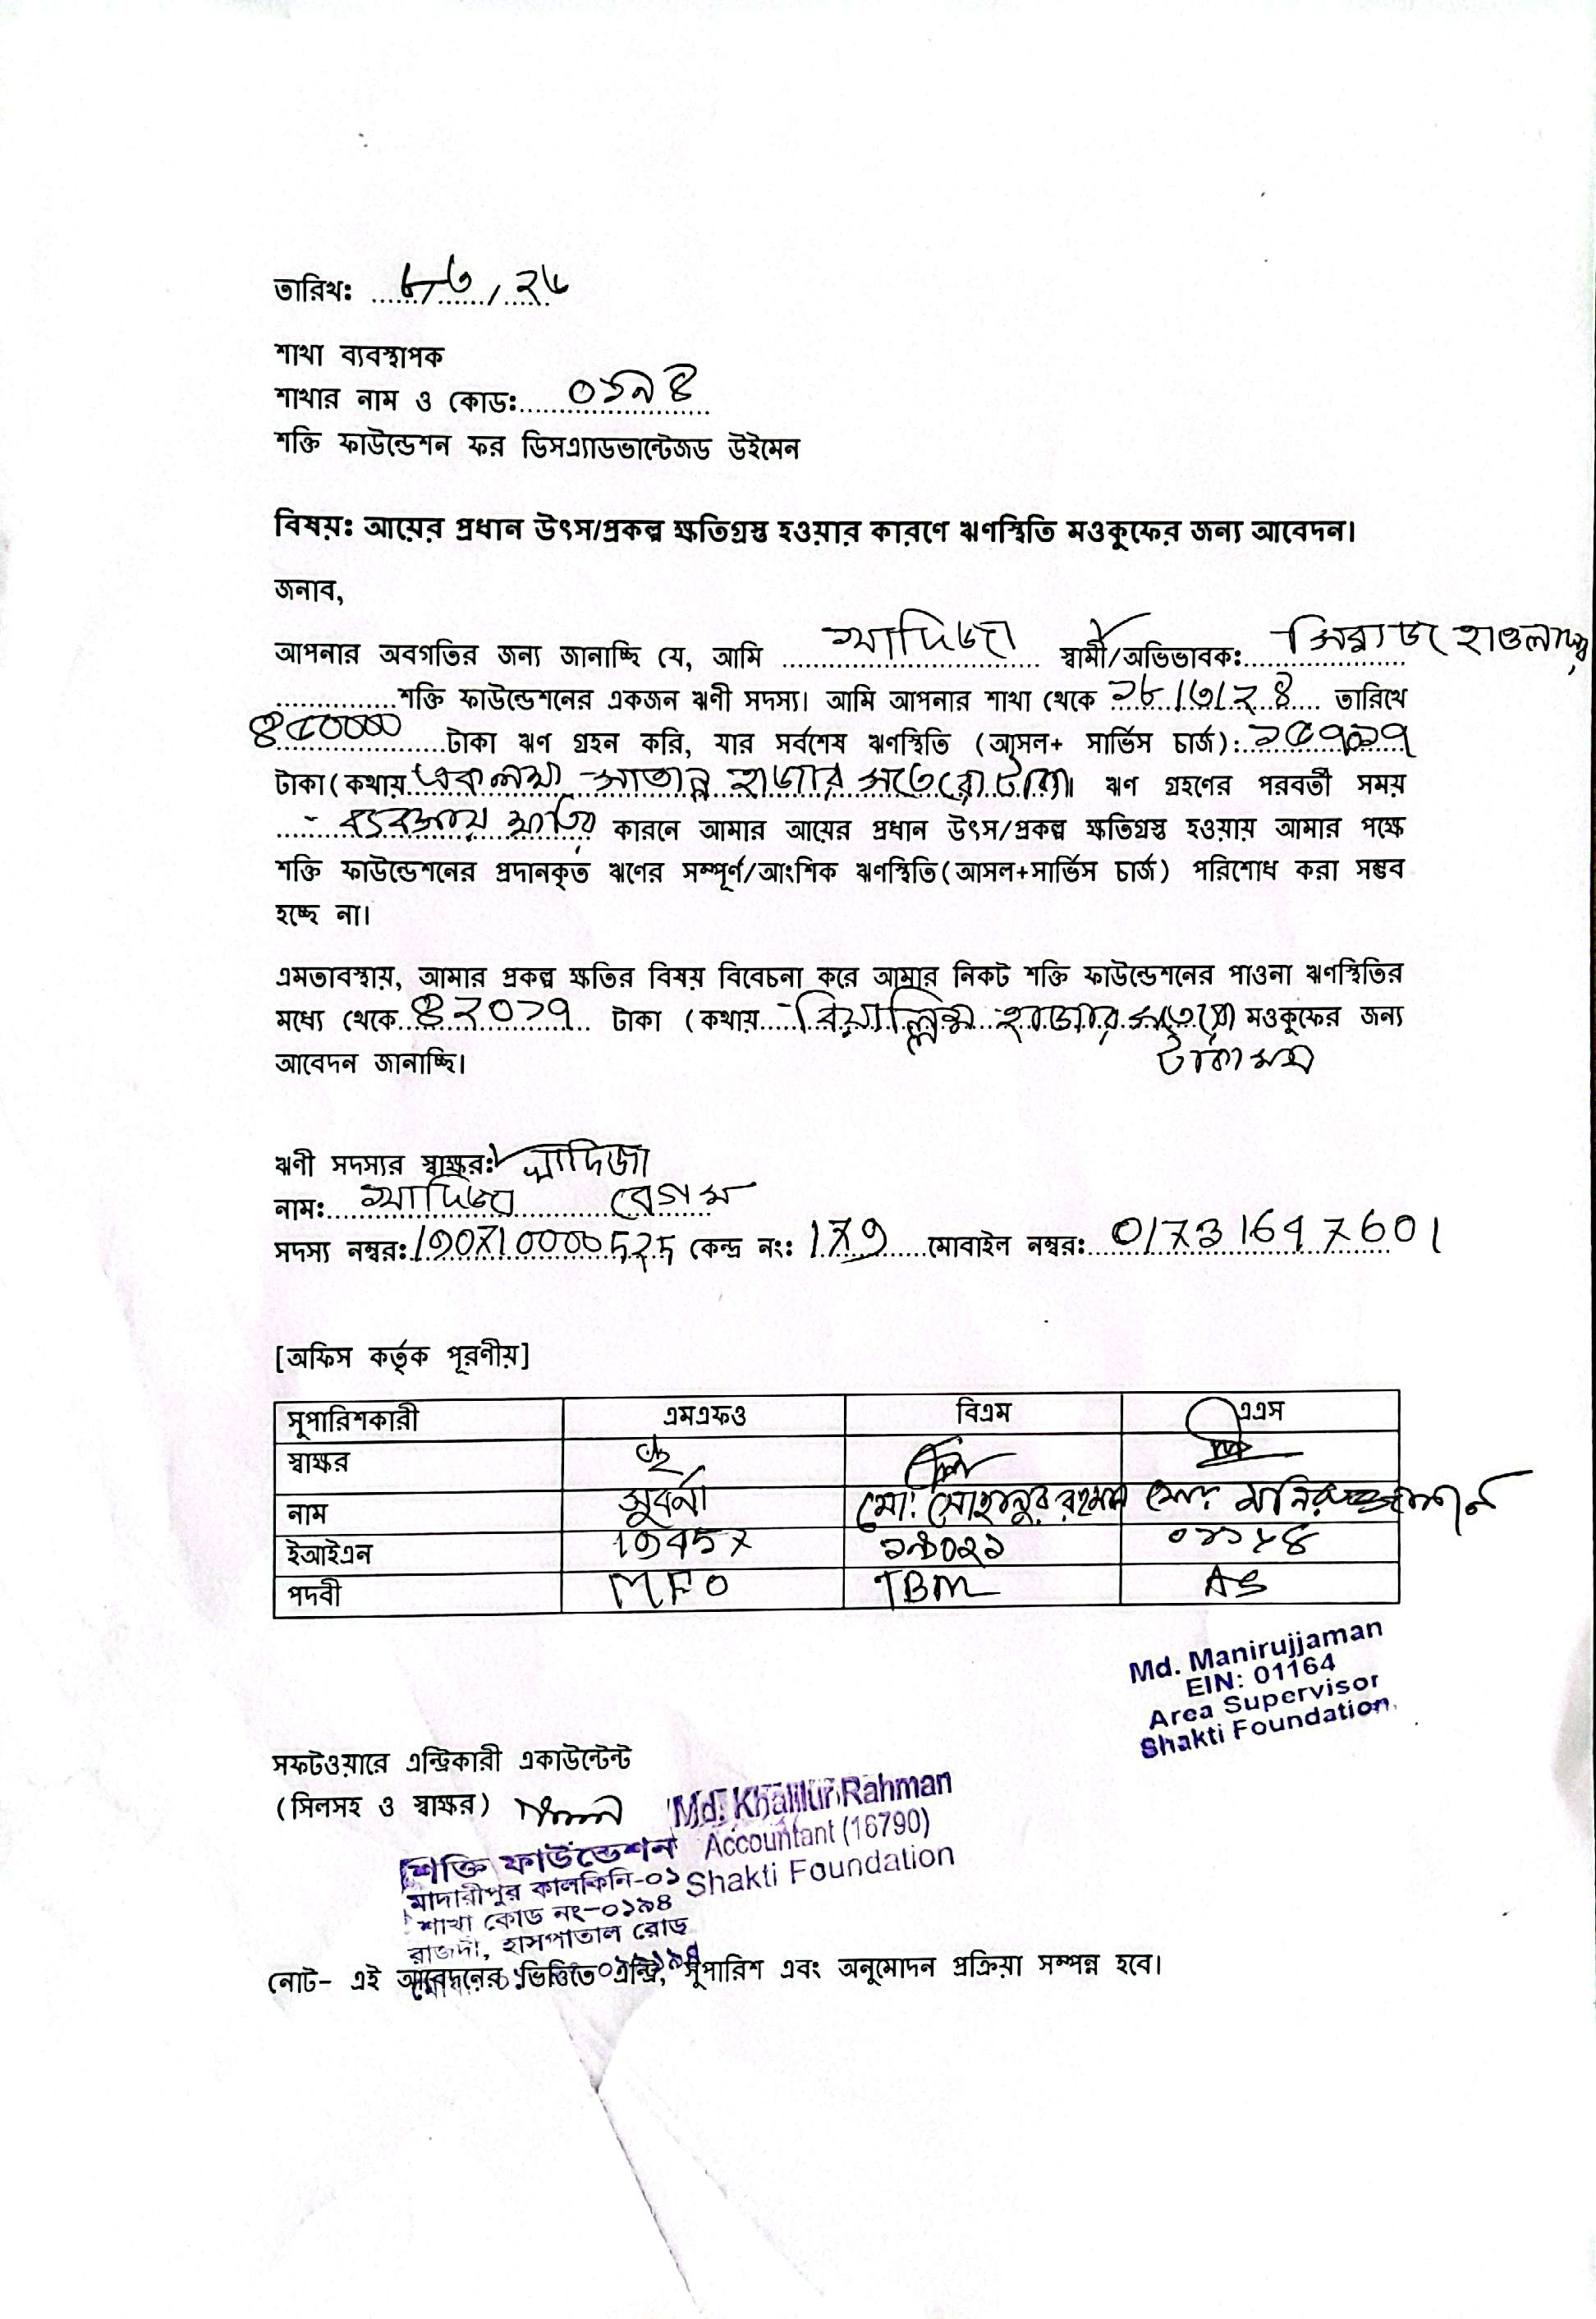 তারিখঃ ৮/৬/২৫
শাখা ব্যবস্থাপক
শাখার নাম ও কোডঃ ০১৯৪
শক্তি ফাউন্ডেশন ফর ডিসএ্যাডভান্টেজড উইমেন
বিষয়ঃ আয়ের প্রধান উৎস/প্রকল্প ক্ষতিগ্রস্ত হওয়ার কারণে ঋণস্থিতি মওকুফের জন্য আবেদন।
জনাব,
আপনার অবগতির জন্য জানাচ্ছি যে, আমি খাদিজা স্বামী/অভিভাবক: সিরাজ হাওলাদার,
শক্তি ফাউন্ডেশনের একজন ঋণী সদস্য। আমি আপনার শাখা থেকে ১৮/৩/২৪ তারিখে
৪৫০০০০ টাকা ঋণ গ্রহন করি, যার সর্বশেষ ঋণস্থিতি (আসল+ সার্ভিস চার্জ): ১৫৭০১৭
টাকা (কথায় একলাখ সাতান্ন হাজার সতেরো টাকা) ঋণ গ্রহণের পরবর্তী সময়
ব্যবসায় ক্ষতির কারনে আমার আয়ের প্রধান উৎস/প্রকল্প ক্ষতিগ্রস্ত হওয়ায় আমার পক্ষে
শক্তি ফাউন্ডেশনের প্রদানকৃত ঋণের সম্পূর্ণ/আংশিক ঋণস্থিতি(আসল+সার্ভিস চার্জ) পরিশোধ করা সম্ভব
হচ্ছে না।
এমতাবস্থায়, আমার প্রকল্প ক্ষতির বিষয় বিবেচনা করে আমার নিকট শক্তি ফাউন্ডেশনের পাওনা ঋণস্থিতির
মধ্যে থেকে ৪২০১৭ টাকা (কথায় বিয়াল্লিশ হাজার সতেরো) মওকুফের জন্য
টাকা মাত্র
আবেদন জানাচ্ছি।
ঋণী সদস্যর স্বাক্ষর: খাদিজা
নাম: খাদিজা বেগম
সদস্য নম্বর: কেন্দ্র নং: 179 মোবাইল নম্বর: 01731647601
[অফিস কর্তৃক পূরণীয়]
সুপারিশকারী এমএফও বিএম এএস
স্বাক্ষর
নাম সুবর্না মো: সোহানুর রহমান মোঃ মনিরুজ্জামান
ইআইএন 19457 ১৯০২১ ০১১৬৪
পদবী MFO TBM AS
Md. Manirujjaman
EIN: 01164
Area Supervisor
Shakti Foundation.
সফটওয়ারে এন্ট্রিকারী একাউন্টেন্ট
(সিলসহ ও স্বাক্ষর)
Md. Khalilur Rahman
Accountant (16790)
Shakti Foundation
শক্তি ফাউন্ডেশন
মাদারীপুর কালকিনি-০১
শাখা কোড নং-০১৯৪
রাজদী, হাসপাতাল রোড
নোট- এই আবেদনের ভিত্তিতে এন্ট্রি, সুপারিশ এবং অনুমোদন প্রক্রিয়া সম্পন্ন হবে।